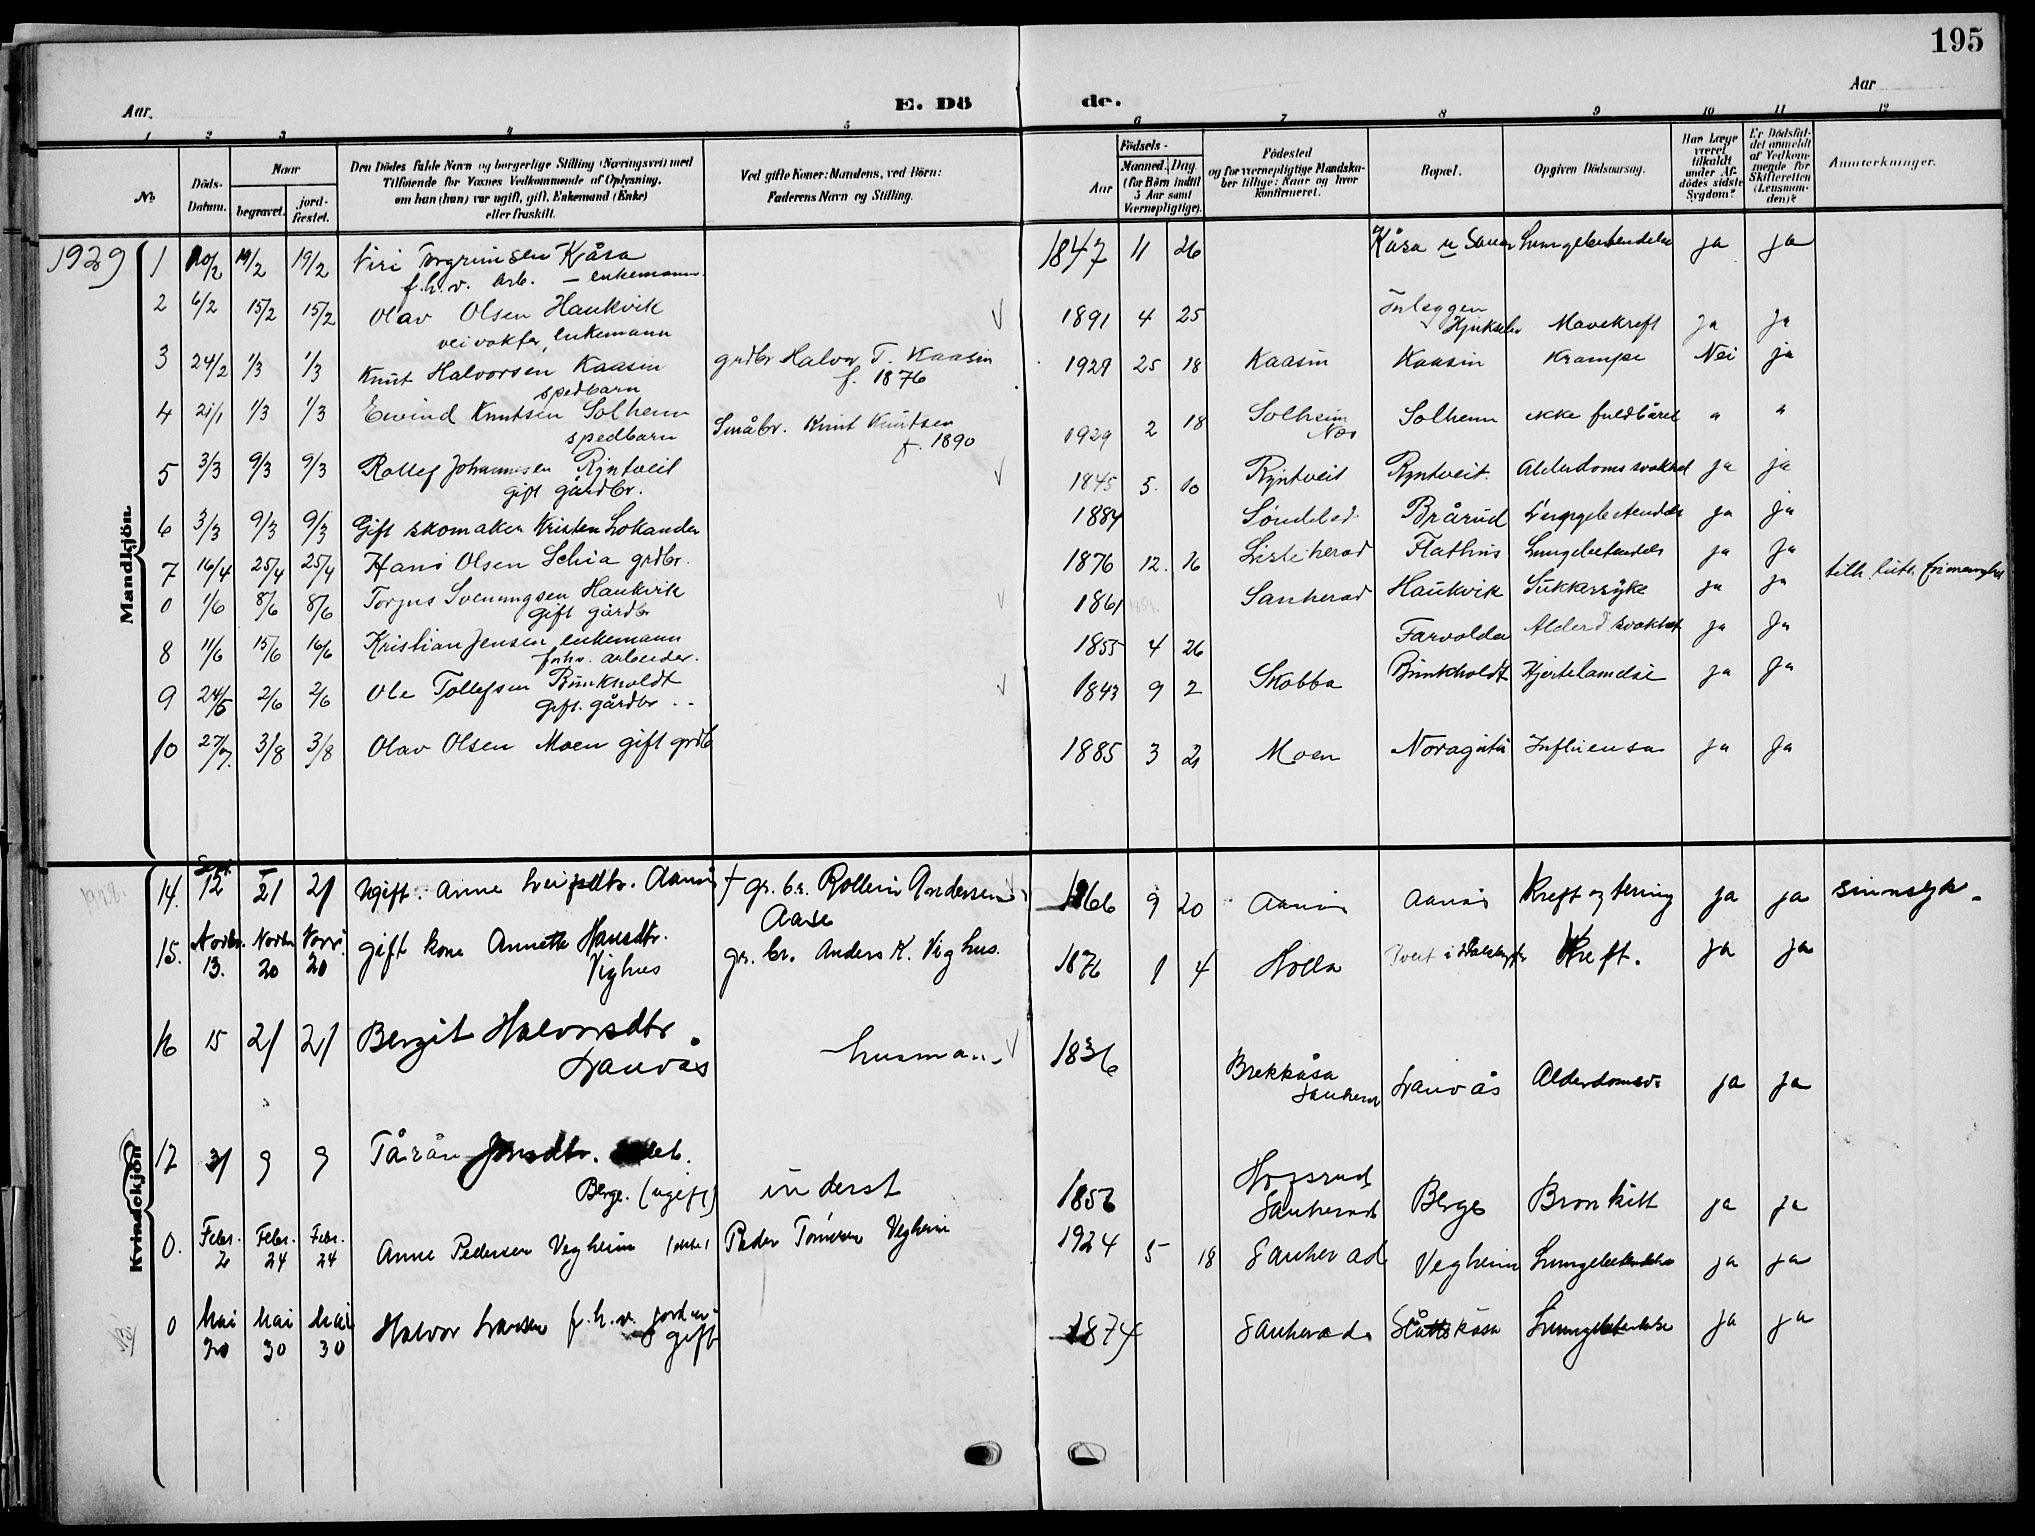 195
Aar
Aar
E. Dö de.
1 2 3 4 5 6 7 8 9 10 11 12
No
Döds-Datum.
Naar
begravet. jord-fæstet.
Den Dödes fulde Navn og borgerlige Stilling (Næringsvei) med
Tilföiende for Voxnes Vedkommende af Oplysning,
om han (hun) var ugift, gift, Enkemand (Enke)
eller fraskilt.
Ved gifte Koner: Mandens, ved Börn:
Faderens Navn og Stilling.
Födsels-
Aar
Maaned. Dag.
(for Börn indtil
5 Aar samt
Værnepligtige).
Födested
og for værnepligtige Mandska-
ber tillige: Naar og hvor
konfirmeret.
Bopæl.
Opgiven Dödsaarsag.
Har Læge
været
tilkaldt
under Af-
dödes sidste
Sygdom?
Er Dödsfal-
det anmeldt
af Vedkom-
mende for
Skifteretten
(Lensman-
den)?
Anmerkninger.
Mandkjön.
1929 1 10/2 19/2 19/2 Torgrimsen Kåsa 1847 11 26 Kåsa Lungebetendelse ja ja
f.h.v. arb. - enkemann
2 6/2 15/2 15/2 Olav Olsen Haukvik 1891 4 25 Hjuksebø Mavekreft ja ja
veivokter, enkemann
3 24/2 1/3 1/3 Knut Halvorsen Kaasin grdbr Halvor T. Kaasin 1929 25 18 Kaasin Kaasin Krampe Nei ja
spedbarn f. 1876
4 21/1 1/3 1/3 Eivind Knutsen Solheim Småbr. Knut Knutsen 1929 2 18 Solheim Solheim ikke fuldbåret " "
spedbarn f. 1890 Nes
5 3/3 9/3 9/3 Rollef Johannesen Ryntveit 1845 5 10 Ryntveit Ryntveit. Alderdomssvakhet ja ja
gift gårdbr.
6 3/3 9/3 9/3 Gift skomaker Kristen Lokander 1884 Søndeled Brårud Lungebetendelse ja ja
7 16/4 25/4 25/4 Hans Olsen Schia grdbr. 1876 12. 16 Lisleherad Flathus Lungebetendelse ja ja tilh. luth. frimenighet
0 1/6 8/6 8/6 Torjus Sveinungsen Haukvik 1861 Sauherad Haukvik Sukkersyke ja ja
gift gårdbr
8 11/6 15/6 16/6 Kristian Jensen enkemann 1855 4 26 Farvolden Alderd.svakhet ja ja
fhv. arbeider.
9 24/5 2/6 2/6 Ole Tollefsen Bunkholdt 1843 9 2 Skobba Bunkholdt Hjertelamelse ja ja
gift. gårdbr
10 27/7 3/8 3/8 Olav Olsen Moen gift grdb 1885 3 21 Moen Noragutu Influensa ja ja
Kvindekjön.
1928.
14. Sept. 12 21 21 Ugift: Anne Aanås † gr. br. Andersen 1866 9 20 Aanås Aanås Kreft og tering ja ja sinnsyk.
Aase
15. Novbr. 13. Novbr 20 Novbr. 20 gift kone Annette Hansdtr. gr. br. Anders K. Vighus. 1876 1 4 Holla Kreft. ja ja
Vighus
16 15 21 21 Bergit Halvorsdtr. husmann 1836 Brekkåsa Lanvås Alderdomsv. ja ja
Lanvås Sauherad
17 31 9 9 Tårån Jonsdtr. inderst 1856 Sauherad Berge Bronkitt ja ja
Berge. (ugift)
0. Febr. 2 Febr. 24 Febr. 24 Anne Pedersen Vegheim Peder Vegheim 1924 5 18 Sauherad Vegheim Lungebetendelse ja ja
0 Mai 20 Mai 30 Mai 30 Halvor f.h.v. gift 1874 Sauherad Slåttekåsa Lungebetendelse ja ja